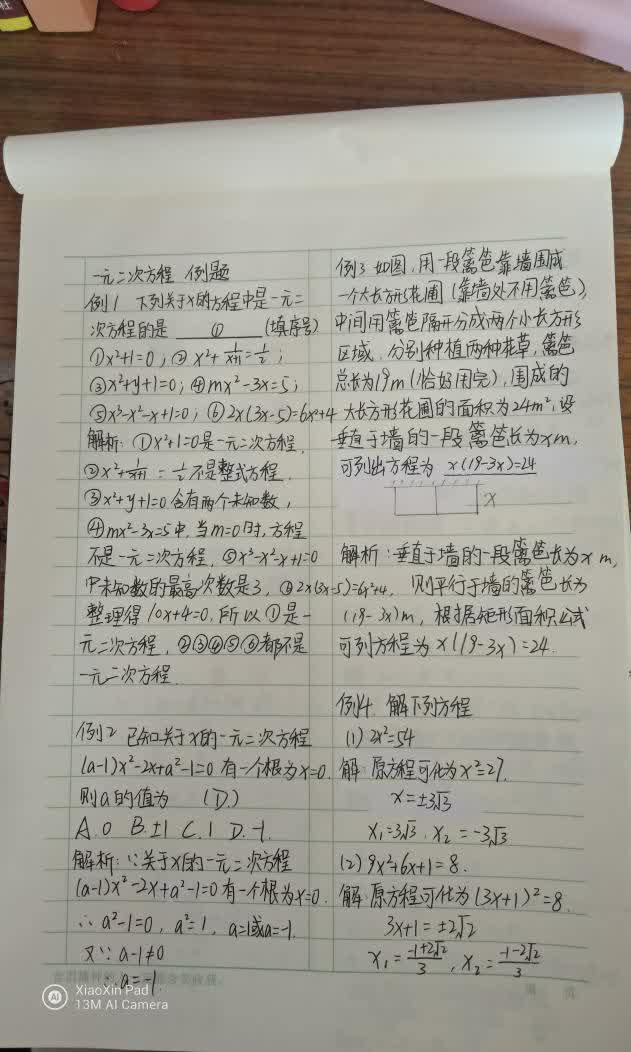 一元二次方程 例题
例1 下列关于x的方程中是一元二
次方程的是 ① (填序号)
①x²+1=0; ②x²+1/(x+1)=1/2;
③x²+y+1=0; ④mx²-3x=5;
⑤x³-x²-x+1=0; ⑥2x(3x-5)=6x²+4
解析: ①x²+1=0是一元二次方程,
②x²+1/(x+1)=1/2不是整式方程,
③x²+y+1=0含有两个未知数,
④mx²-3x=5中,当m=0时,方程
不是一元二次方程, ⑤x³-x²-x+1=0
中未知数的最高次数是3, ⑥2x(3x-5)=6x²+4,
整理得10x+4=0,所以①是一
元二次方程, ②③④⑤⑥都不是
一元二次方程.
例2 已知关于x的一元二次方程
(a-1)x²-2x+a²-1=0有一个根为x=0.
则a的值为 (D)
A.0 B.±1 C.1 D.-1.
解析:∵关于x的一元二次方程
(a-1)x²-2x+a²-1=0有一个根为x=0.
∴a²-1=0, a²=1, a=1或a=-1.
又∵a-1≠0
∴a=-1
例3 如图,用一段篱笆靠墙围成
一个大长方形花圃(靠墙处不用篱笆),
中间用篱笆隔开分成两个小长方形
区域,分别种植两种花草,篱笆
总长为19m(恰好用完),围成的
大长方形花圃的面积为24m²,设
垂直于墙的一段篱笆长为xm,
可列出方程为 x(19-3x)=24
x
解析:垂直于墙的一段篱笆长为x m,
则平行于墙的篱笆长为
(19-3x)m,根据矩形面积公式
可列方程为x(19-3x)=24.
例4 解下列方程
(1)2x²=54
解 原方程可化为x²=27.
x=±3√3
x₁=3√3, x₂=-3√3
(2)9x²+6x+1=8.
解 原方程可化为(3x+1)²=8.
3x+1=±2√2
x₁=(-1+2√2)/3, x₂=(-1-2√2)/3
XiaoXin Pad
13M AI Camera
AI